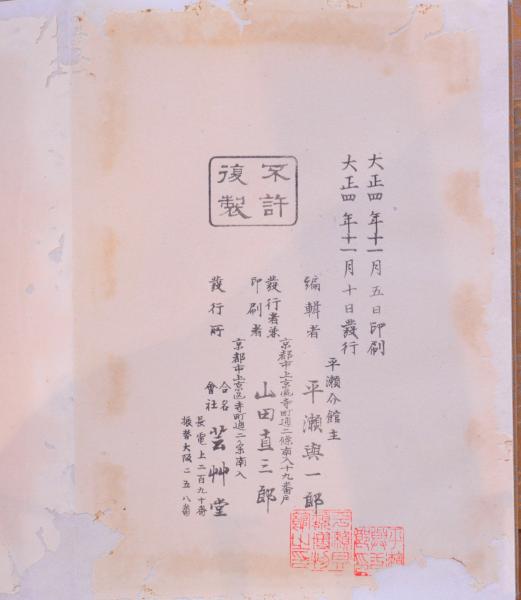 大正四年十一月五日印刷
大正四年十一月十日發行
不許
復製
平瀨介館主
編輯者 平瀨與一郎
京都市上京區寺町通二條南入十九番戶
發行者兼
印刷者 山田直三郎
京都市上京區寺町通二条南入
發行所 合名會社 芸艸堂
長電上二百九十番
振替大阪二五八番